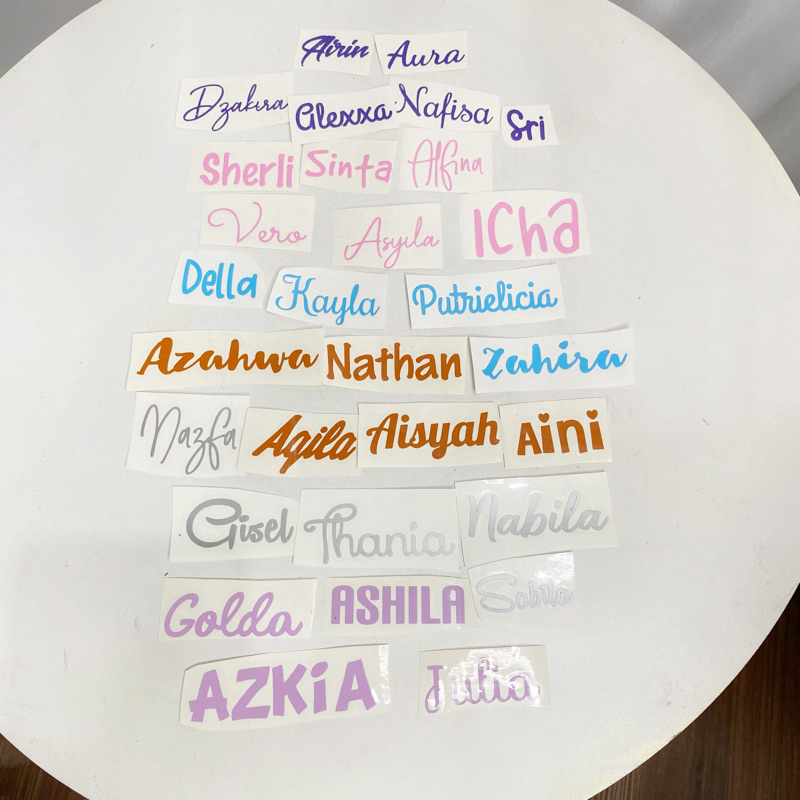 Airin Aura
Dzakira Glexxa Nafisa Sri
Sherli Sinta Alfina
Vero Asyila ICha
Della Kayla Putrielicia
Azahwa Nathan Zahira
Nazfa Aqila Aisyah Aini
Gisel Thania Nabila
Golda ASHILA Sabila
AZKiA Julia